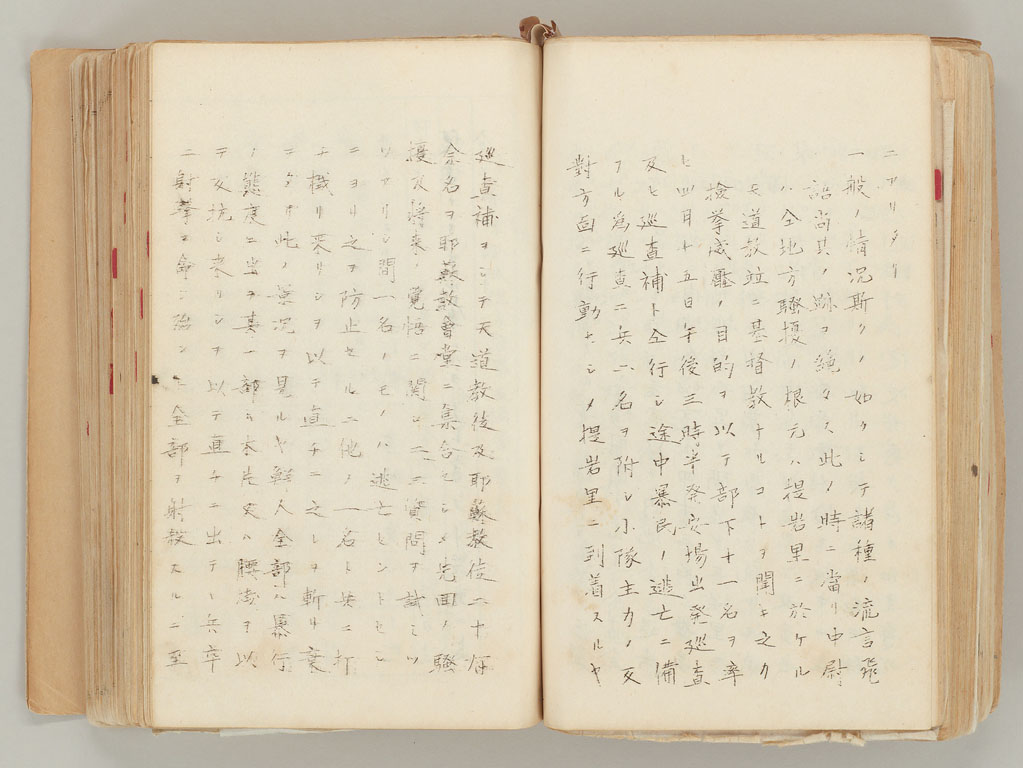 ニアリタリ
一般ノ情況斯クノ如クシテ諸種ノ流言飛
語尚其ノ跡ヲ絶タス此ノ時ニ當リ中尉
ハ全地方騒擾ノ根元ハ提岩里ニ於ケル
天道教竝ニ基督教ナルコトヲ聞キ之カ
檢挙威壓ノ目的ヲ以テ部下十一名ヲ率
ヒ四月十五日午後三時半発安場出発巡査
及ヒ巡査補ト仝行シ途中暴民ノ逃亡ニ備
フル為巡査ニ兵六名ヲ附シ小隊主力ノ反
對方面ニ行動セシメ提岩里ニ到着スルヤ
巡査補ヲシテ天道教徒及耶蘇教徒二十有
余名ヲ耶蘇教會堂ニ集合セシメ先回ノ騒
擾及将来ノ覚悟ニ関シ二、三資問ヲ試ミツ
ツアリシ間一名ノモノハ逃亡セントセシ
ニヨリ之ヲ防止セルニ他ノ一名ト共ニ打
チ掛リ来リシヲ以テ直チニ之レヲ斬リ棄
テタリ此ノ景況ヲ見ルヤ鮮人全部ハ暴行
ノ態度ニ出ヲ其一部ハ木片又ハ腰掛ヲ以
テ反抗シ来リシヲ以テ直チニ出テ兵卒
ニ射撃ヲ命シ殆ント全部ヲ射殺スルニ至